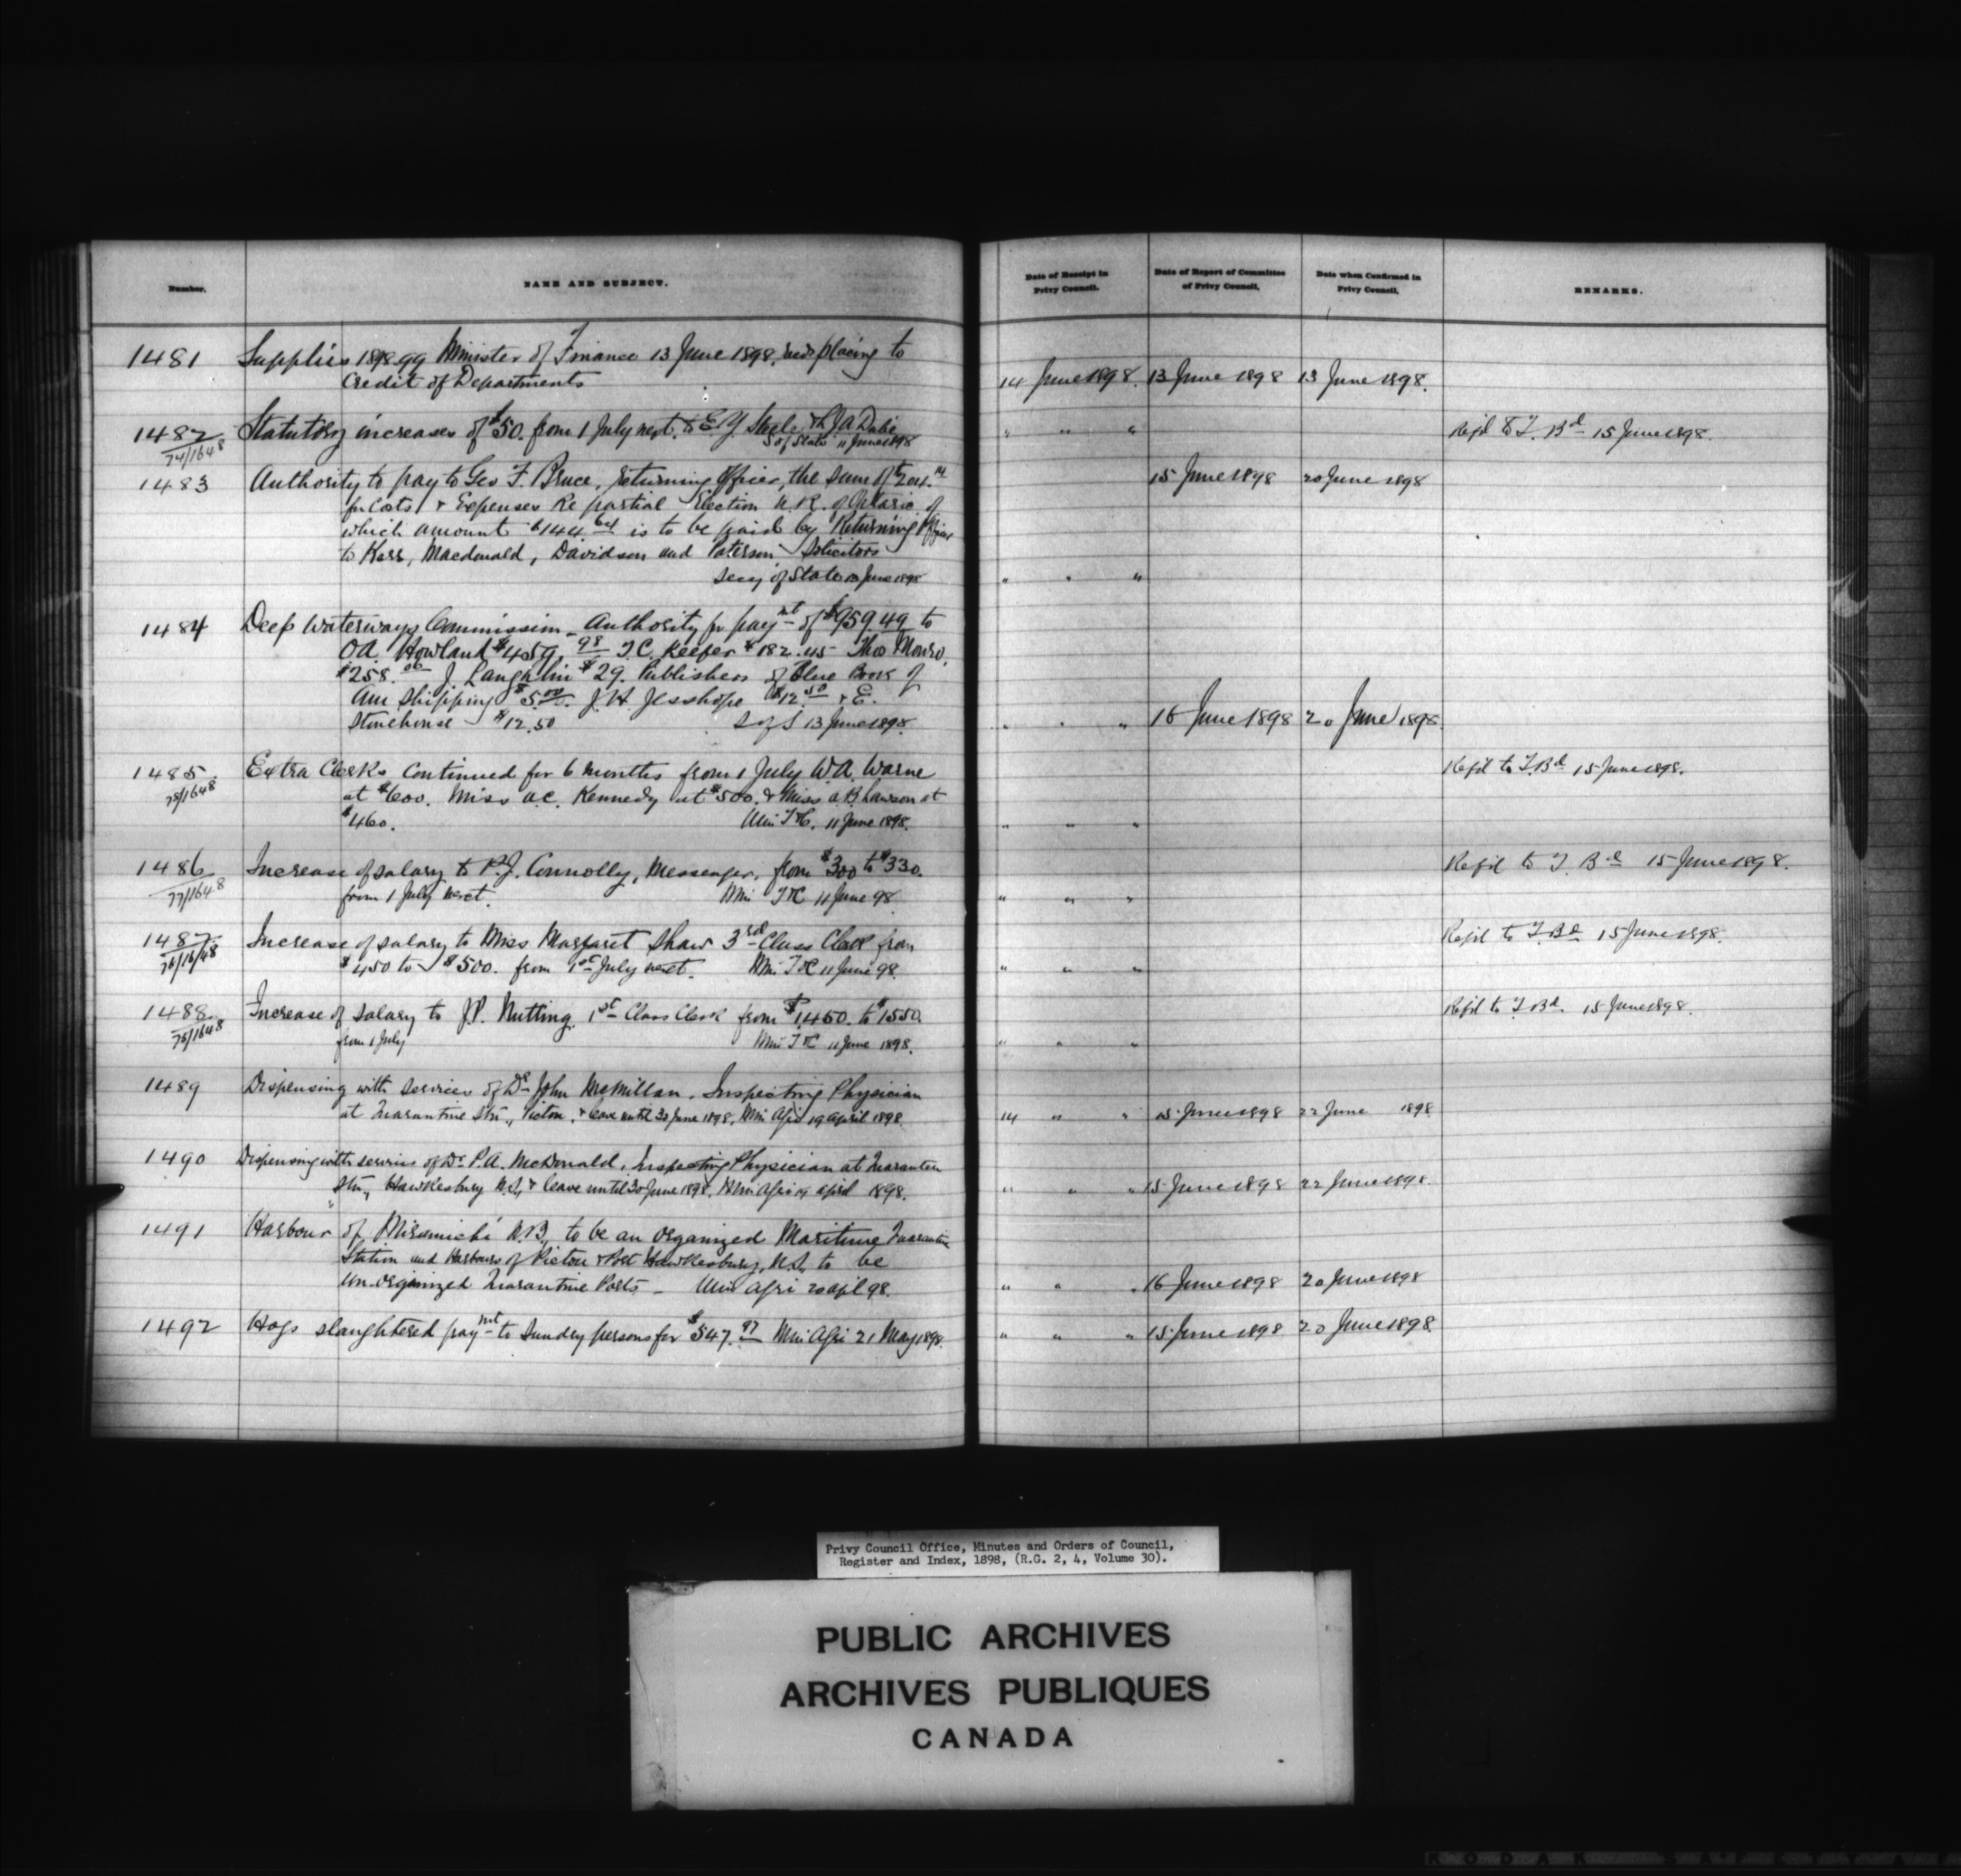 Number.
NAME AND SUBJECT.
Date of Receipt in Privy Council.
Date of Report of Committee of Privy Council.
Date when Confirmed in Privy Council.
REMARKS.
1481 Supplies 1898.99 Minister of Finance 13 June 1898, placing to
Credit of Departments 14 June 1898. 13 June 1898 13 June 1898.
1482 Statutory increases of $50. from 1 July next. to E. Y. Steele & L J A Dubé " " " Refd to T. Bd 15 June 1898.
74/1648 S of State 11 June 1898
1483 Authority to pay to Geo F. Bruce, returning Officer, the sum of 15 June 1898 20 June 1898
for Costs & Expenses Re partial Election W. R. of Ontario of
which amount $144.64 is to be paid by Returning Officer
to Kerr, Macdonald, Davidson and Paterson Solicitors
Secy of State 13 June 1898 " " "
1484 Deep Waterways Commission - Authority for paymt of $959.49 to
O A. Howland $459.98 T. C. Keefer $182.45 Thos Monro.
$258.06 J. Laughlin $29. Publishers of Blue Book of
Am Shipping $5.00. J. H. Jesshope $12.50 & E.
Stonehouse $12.50 S of S 13 June 1898. " " " 16 June 1898 20 June 1898.
1485. Extra Clerks Continued for 6 months from 1 July W. A. Warne Refd to T. Bd 15 June 1898.
78/1648 at $600. Miss A. C. Kennedy at $500. & Miss A. B. Lawson at
$460. Min T & C. 11 June 1898. " " "
1486 Increase of salary to P. J. Connolly, Messenger, from $300 to $330. Refd to T. Bd 15 June 1898.
77/1648 from 1 July next. Min T & C 11 June 98 " " "
1487 Increase of salary to Miss Margaret Shaw 3rd Class Clerk from Refd to T. Bd 15 June 1898.
76/1648 $450 to $500. from 1st July next. Min T & C 11 June 98. " " "
1488. Increase of Salary to J. P. Nutting. 1st Class Clerk from $1450. to $1550. Refd to T. Bd. 15 June 1898.
75/1648 from 1 July Min T & C 11 June 1898. " " "
1489 Dispensing with services of Dr John McMillan, Inspecting Physician
at Quarantine Stn., Pictou, & leave until 30 June 1898, Min Agri 19 April 1898. 14 " " 15 June 1898 22 June 1898
1490 Dispensing with services of Dr P. A. McDonald, Inspecting Physician at Quarantine
Stn., Hawkesbury N.S., & leave until 30 June 1898. Min Agri 19 April 1898. " " " 15 June 1898 22 June 1898.
1491 Harbour of Miramichi N.B., to be an organized Maritime Quarantine
Station and Harbours of Pictou & Port Hawkesbury, N.S., to be
Un-organized Quarantine Ports - Min Agri 20 Apl 98. " " " 16 June 1898 20 June 1898
1492 Hogs slaughtered paymt to Sundry persons for $547.97 Min Agri 21 May 1898. " " " 15 June 1898 20 June 1898.
Privy Council Office, Minutes and Orders of Council,
Register and Index, 1898, (R.G. 2, 4, Volume 30).
PUBLIC ARCHIVES
ARCHIVES PUBLIQUES
CANADA